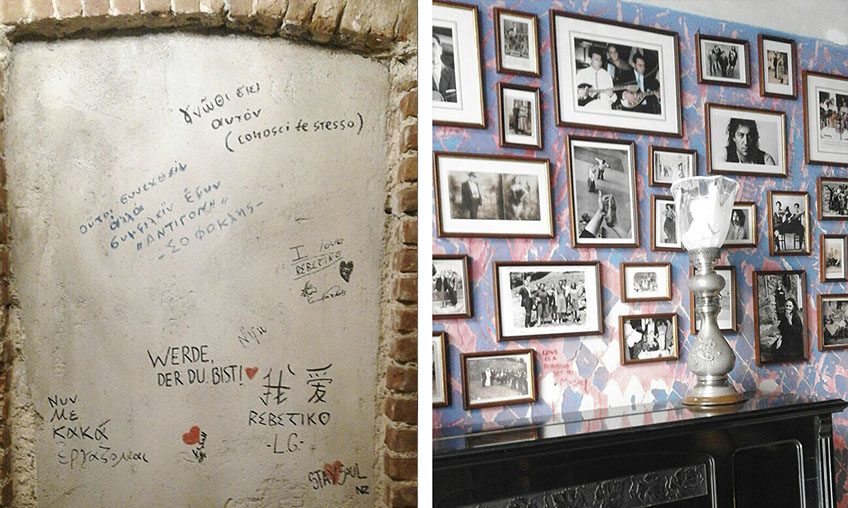 γνῶθι σεαυτόν
(conosci te stesso)
οὔτοι συνέχθειν
ἀλλὰ
συμφιλεῖν ἔφυν
"ΑΝΤΙΓΟΝΗ"
-Σοφοκλῆς-
I love
REBETIKO
WERDE,
DER DU BIST!
我 爱
REBETIKO
-LG-
NUN
ME
KAKÁ
STAY SOUL
NZ
LOVE
IS A
Music!